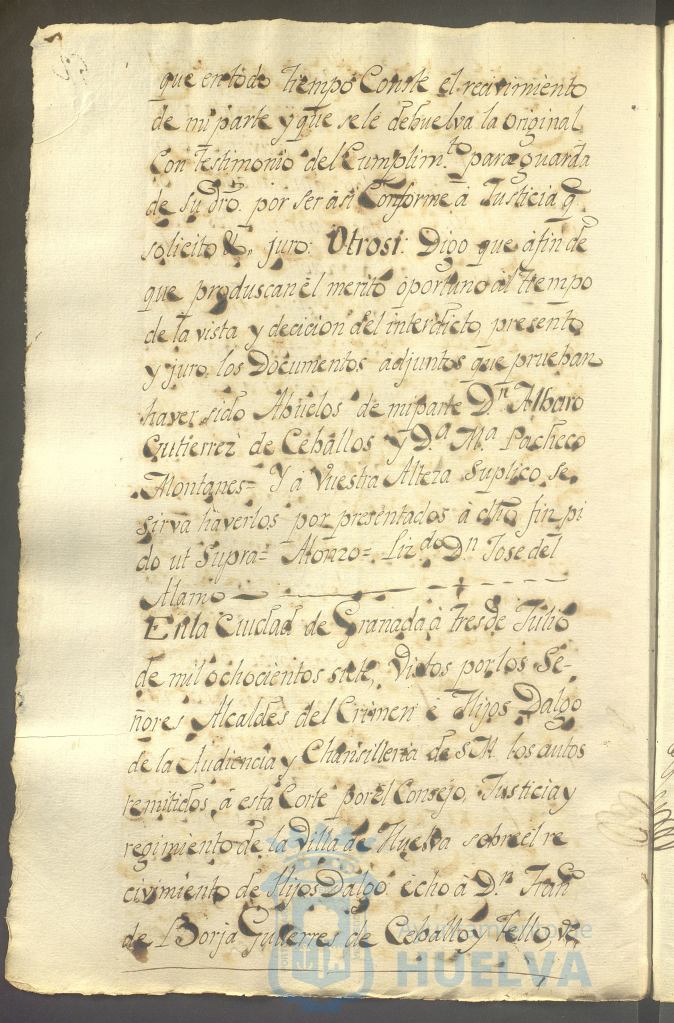 que en todo tiempo Conste el recivimiento
de mi parte y que se le debuelva la Original
Con testimonio del Cumplim.to para guarda
de su dro. por ser asi Conforme à Justicia q.
solicito &. juro: Otrosi: Digo que afin de
que produscan el merito oportuno àl tiempo
de la vista y decicion del interdicto, presento
y juro los Documentos adjuntos que prueban
haver sido Abuelos de mi parte Dn. Albaro
Gutierrez de Ceballos y D.a M.a Pacheco
Montanes= Y à Vuestra Alteza Suplico se
sirva haverlos por presentados à dho fin pi
do ut Supra= Alonzo= Lizdo. Dn Jose del
Alamo
En la Ciudad de Granada à tres de Julio
de mil ochocientos siete, Vistos por los Se-
ñores Alcaldes del Crimen è Hijos Dalgo
de la Audiencia y Chansilleria de S.M. los autos
remitidos à esta Corte por el Consejo, Justicia y
regimiento de la Villa de Huelva sobre el re
civimiento de Hijos Dalgo echo à D.n Fran.co
de Borja Gutierres de Ceballos y Tello, ve
Ayuntamiento de
HUELVA